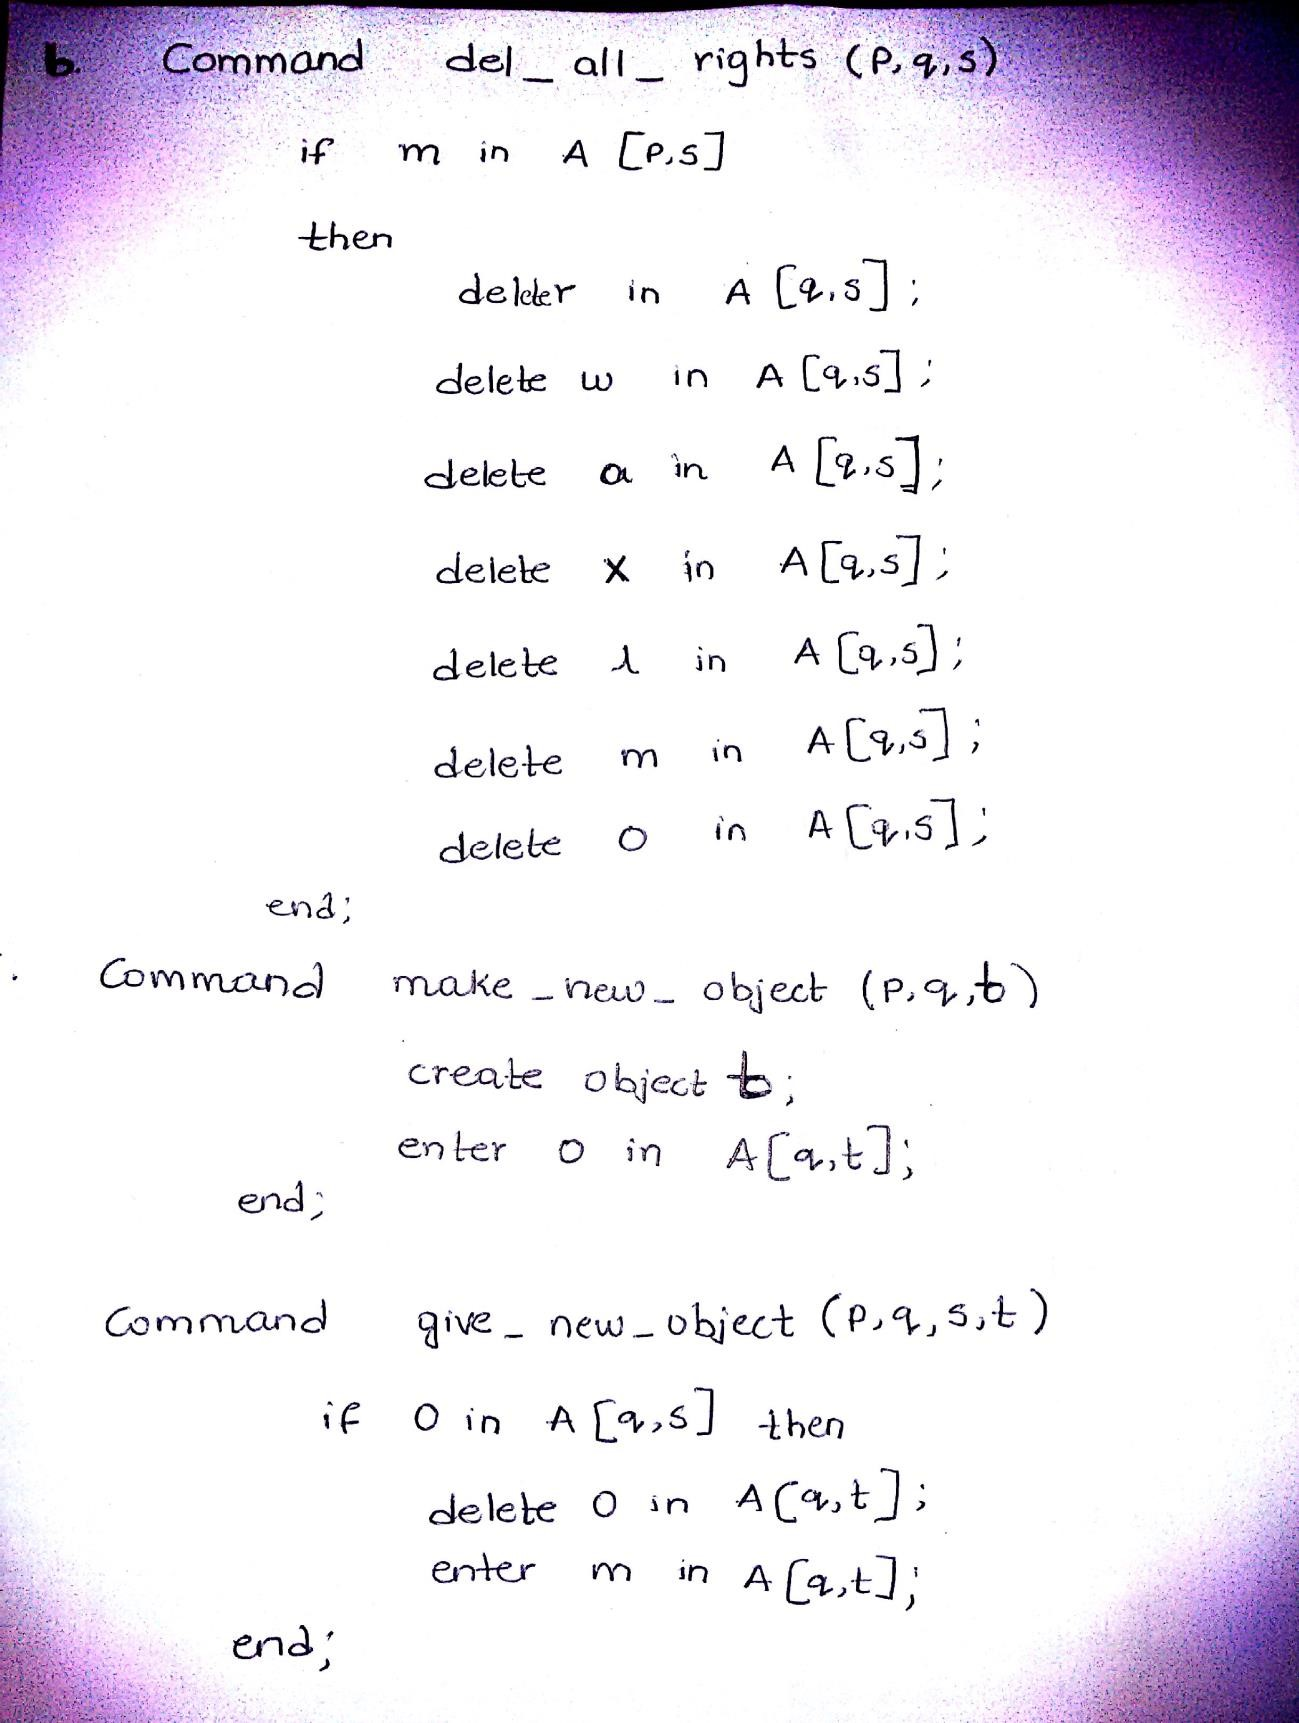 b. Command del_all_rights (p,q,s)
if m in A [p,s]
then
deleter in A [q,s];
delete w in A [q,s];
delete a in A [q,s];
delete x in A [q,s];
delete l in A [q,s];
delete m in A [q,s];
delete o in A [q,s];
end;
Command make_new_object (p,q,t)
create object t;
enter o in A[q,t];
end;
Command give_new_object (p,q,s,t)
if o in A [q,s] then
delete o in A[q,t];
enter m in A[q,t];
end;